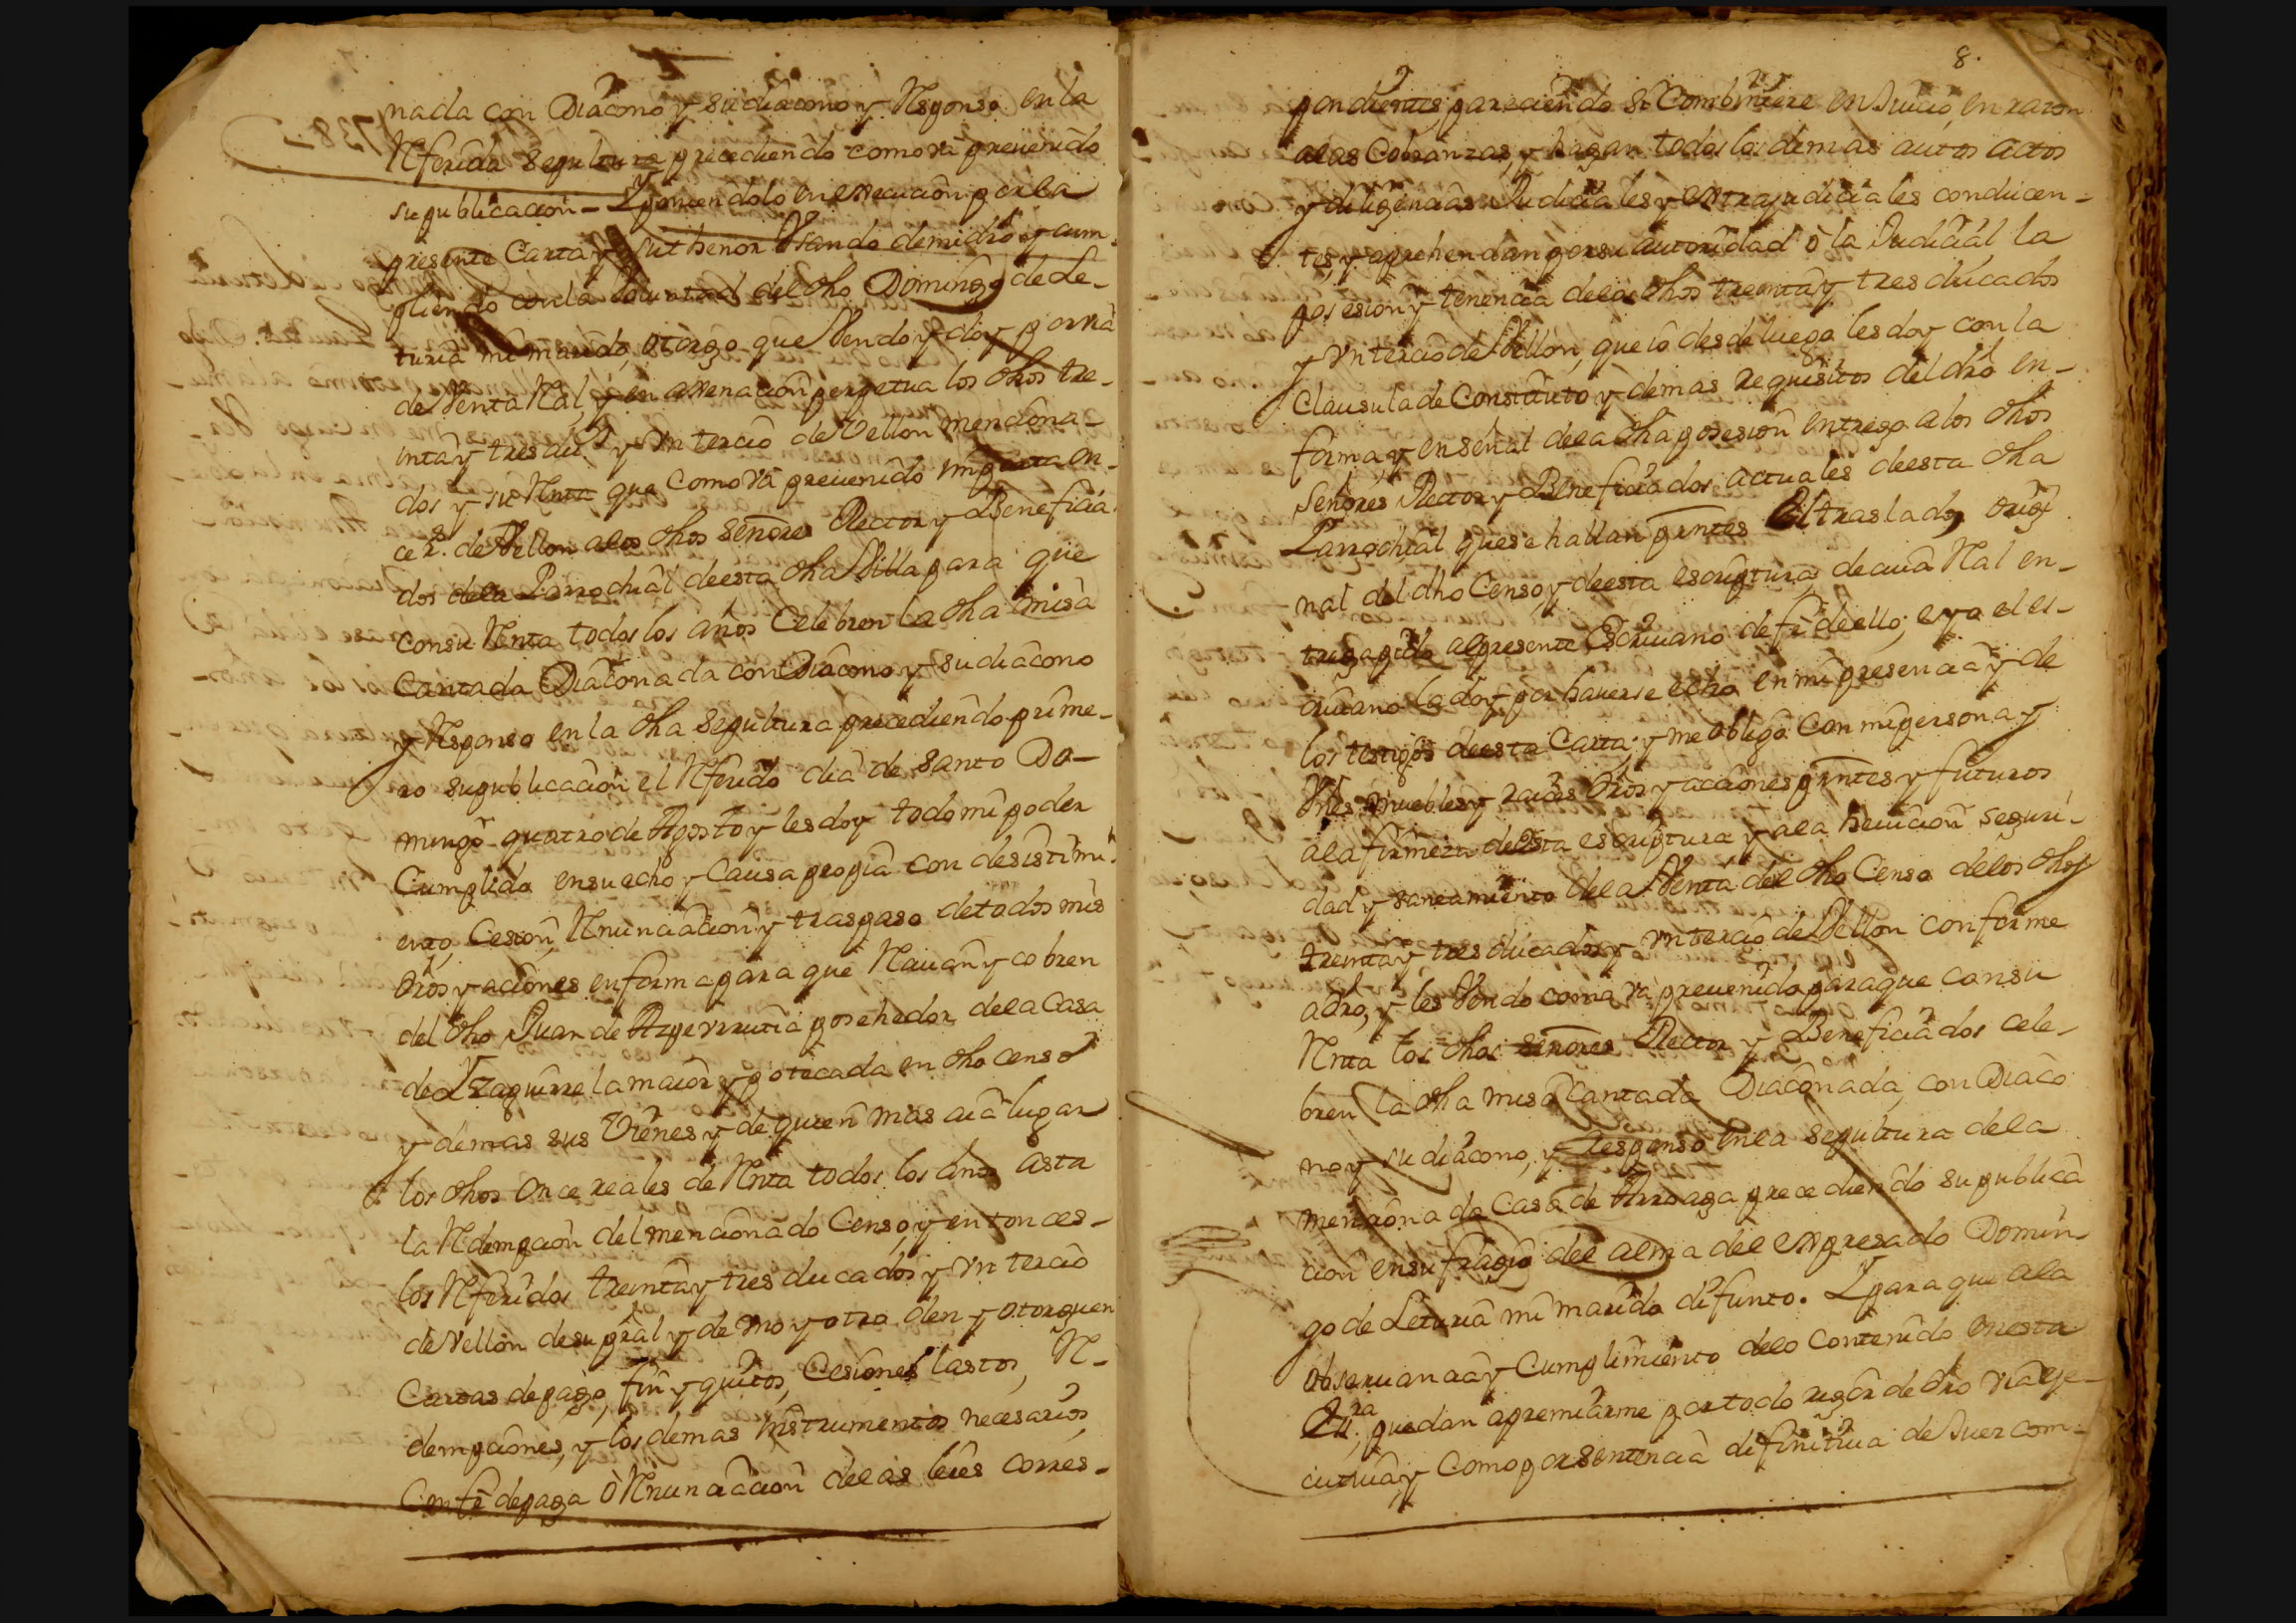 nada con Diácono y sudiacono y Responso en la
Referida sepultura precediendo como va prevenido
su publicacion – Y poniendolo en execucion por la
presente Carta y su thenor Usando demi dro y cum-
pliendo con la voluntad del dho Domingo de Le-
turia mi marido, otorgo que Vendo y doy por via
de Venta Real, y en agenacion perpetua los dhos tre-
inta y tres du.s y un tercio de Vellon menciona-
dos y su Renta que como va prevenido importa on-
ce R.s de Vellon alos dhos señores Rector y Beneficia-
dos dela Parrochial deesta dha Villa para que
con su Renta todos los años Celebren la dha misa
Cantada Diaconada con Diacono y sudiacono
y Responso en la dha sepultura precediendo prime-
ro supublicacion el Referido dia de Santo Do-
mingo quatro de Agosto y les doy todo mi poder
Cumplido en su echo y Causa propia con desistimi-
ento, Cesion, Renunciacion y traspaso de todos mis
dros y aciones en forma para que Reciuan y cobren
del dho Juan de Aizpeurrutia posehedor dela Casa
de Yzaguirre la maior ypotecada en dho censo
y demas sus Vienes y de quien mas aia lugar
los dhos once reales de Renta todos los años asta
la Redempcion del mencionado Censo, y entonces
los Referidos treinta y tres ducados y un tercio
de Vellon de su pral y de uno y otro den y otorguen
Cartas de pago, fin y quitos, Cesiones lastos, Re-
dempciones, y los demas instrumentos necesarios
Con fe de paga ò Renunciacion delas leies corres-
8.
pondientes, pareciendo si Combiniere en Juicio, en razon
alas Cobranzas, y hagan todos los demas autos actos
y diligencias Judiciales y extrajudiciales conducen-
tes, y aprehendan por su autoridad ò la Judicial la
posesion y tenencia delos dhos treinta y tres ducados
y un tercio de Vellon, que io desde luego les doy con la
Clausula de Constituto y demas requisitos del dro en
forma, y en señal dela dha posesion entrego alos dhos
Señores Rector y Beneficiados actuales deesta dha
Parrochial que se hallan prntes el traslado origi-
nal del dho Censo, y deesta escriptura, de cuia Real en-
trega pido al presente Escriuano de fe de ello; e yo el es-
criuano la doy por hauerse echo en mi presencia y de
los testigos deesta Carta; y me obligo con mi persona y
Vnes muebles y raices dros y acciones prntes y futuros
ala firmeza deesta escriptura y ala heuicion seguri-
dad y saneamiento dela Venta del dho Censo delos dhos
treinta y tres ducados y un tercio de Vellon conforme
adro, y les Vendo como va prevenido para que con su
Renta los dhos señores Rector y Beneficiados cele-
bren la dha misa Cantada Diaconada, con Diaco
no y sudiacono, y Responso en la sepultura dela
mencionada Casa de Arroaga precediendo supublica
cion en sufragio del alma del expresado Domin-
go de Leturia mi marido difunto. Y para que ala
obseruancia y Cumplimiento delo Contenido en esta
Es.ra puedan apremiarme por todo rigor de dro via eje-
cutiua, y Como por sentencia difinitiua de Juez com-